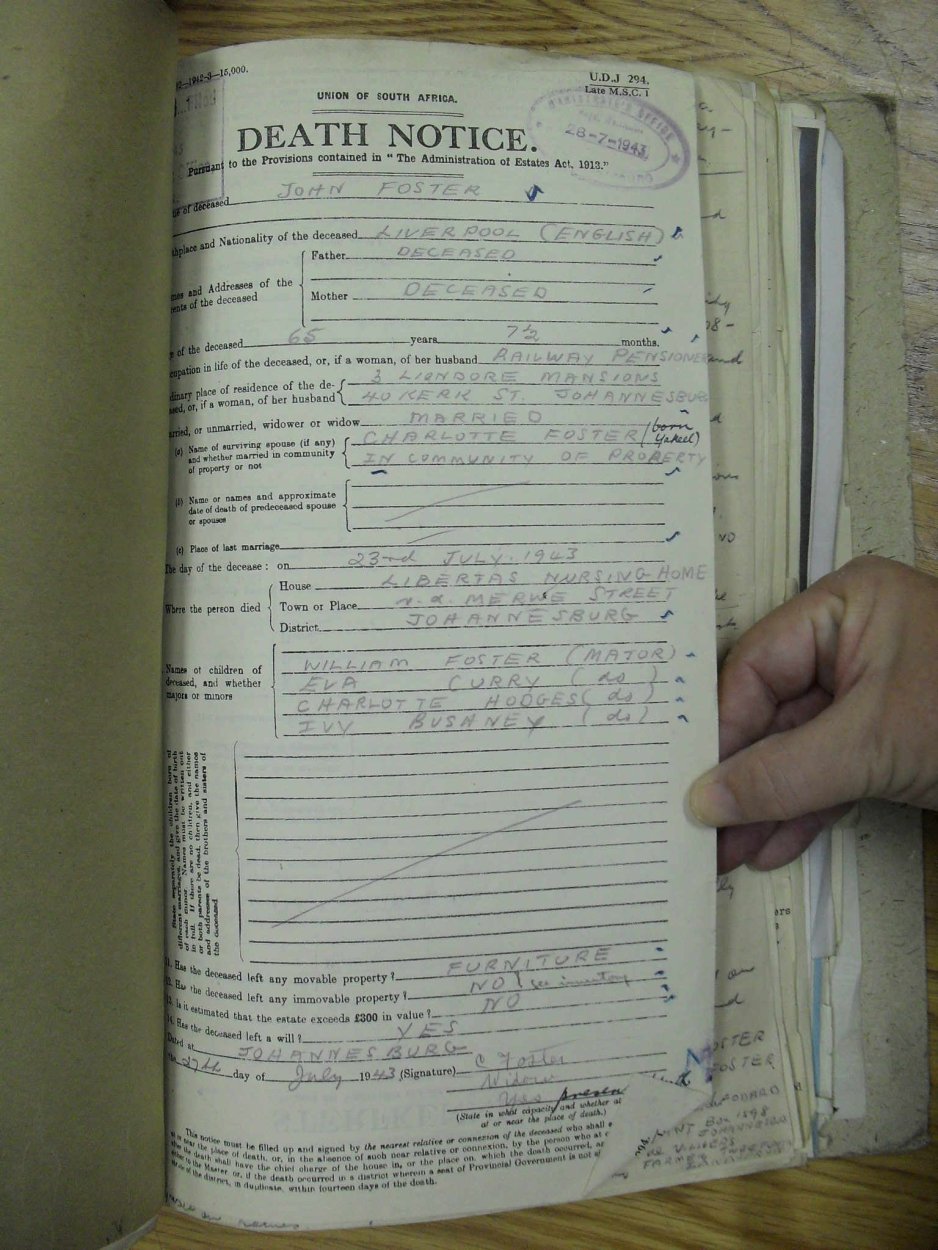 —1942-3—15,000.
U.D.J 294.
Late M.S.C. 1
UNION OF SOUTH AFRICA.
MAGISTRATE'S OFFICE
28-7-1943
DEATH NOTICE.
Pursuant to the Provisions contained in "The Administration of Estates Act, 1913."
of deceased JOHN FOSTER
thplace and Nationality of the deceased LIVERPOOL (ENGLISH)
Father DECEASED
mes and Addresses of the
rents of the deceased
Mother DECEASED
of the deceased 65 years 7½ months.
cupation in life of the deceased, or, if a woman, of her husband RAILWAY PENSIONER
dinary place of residence of the de- 3 LIONDORE MANSIONS
ased, or, if a woman, of her husband 40 KERK ST. JOHANNESBURG
arried, or unmarried, widower or widow MARRIED
(a) Name of surviving spouse (if any) CHARLOTTE FOSTER (born
and whether married in community Yakeel)
of property or not IN COMMUNITY OF PROPERTY
(b) Name or names and approximate
date of death of predeceased spouse
or spouses
(c) Place of last marriage
The day of the decease: on 23rd JULY. 1943
House LIBERTAS NURSING HOME
Where the person died Town or Place v. d. MERWE STREET
District JOHANNESBURG
Names of children of
deceased, and whether
majors or minors
WILLIAM FOSTER (MAJOR)
EVA CURRY (do)
CHARLOTTE HODGES (do)
IVY BUSHNEY (do)
State separately the children born of
different marriages, and give the date of birth
of each minor. Names must be written out
in full. If there are no children, and either
or both parents be dead, then give the names
and addresses of the brothers and sisters of
the deceased.
11. Has the deceased left any movable property? FURNITURE
12. Has the deceased left any immovable property? NO see inventory
13. Is it estimated that the estate exceeds £300 in value? NO
14. Has the deceased left a will? YES
Dated at JOHANNESBURG
the 27th day of July 1943 (Signature) C Foster
Widow
Yes present
(State in what capacity and whether at
or near the place of death.)
This notice must be filled up and signed by the nearest relative or connexion of the deceased who shall
or near the place of death, or, in the absence of such near relative or connexion, by the person who at
the death shall have the chief charge of the house in, or the place on, which the death occurred,
to the Master or, if the death occurred in a district wherein a seat of Provincial Government is not
of the district, in duplicate, within fourteen days of the death.
FOSTER
FOSTER
BOX 1598
JOHANNESBURG
de VILLIERS